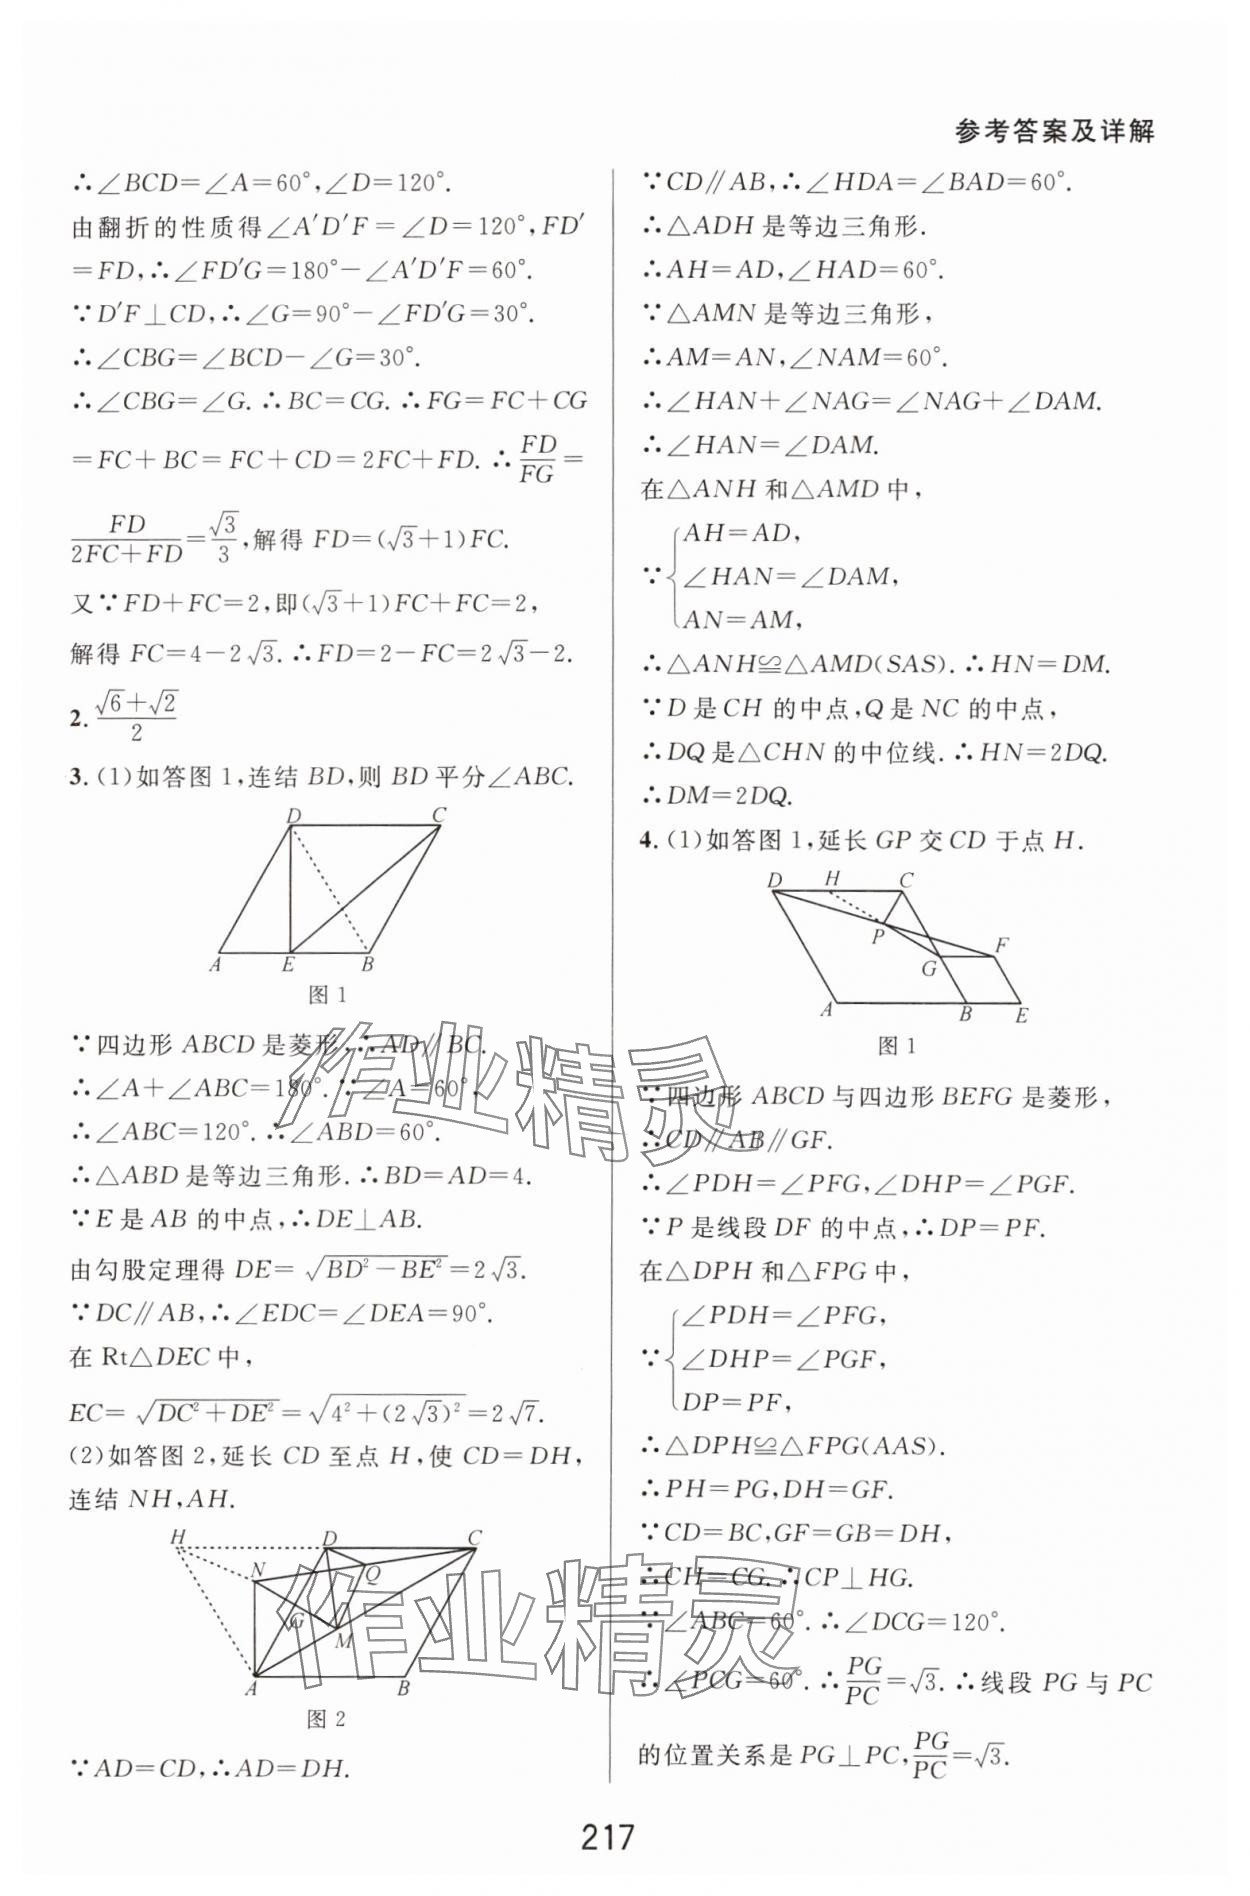 参考答案及详解
∴∠BCD=∠A=60°,∠D=120°.
由翻折的性质得∠A′D′F=∠D=120°,FD′
=FD,∴∠FD′G=180°-∠A′D′F=60°.
∵D′F⊥CD,∴∠G=90°-∠FD′G=30°.
∴∠CBG=∠BCD-∠G=30°.
∴∠CBG=∠G.∴BC=CG.∴FG=FC+CG
=FC+BC=FC+CD=2FC+FD.∴FD/FG=
FD/(2FC+FD)=√3/3,解得 FD=(√3+1)FC.
又∵FD+FC=2,即(√3+1)FC+FC=2,
解得 FC=4-2√3.∴FD=2-FC=2√3-2.
2. (√6+√2)/2
3.(1)如答图1,连结 BD,则 BD 平分∠ABC.
D C
A E B
图1
∵四边形 ABCD 是菱形,∴AD∥BC.
∴∠A+∠ABC=180°.∵∠A=60°,
∴∠ABC=120°.∴∠ABD=60°.
∴△ABD 是等边三角形.∴BD=AD=4.
∵E 是 AB 的中点,∴DE⊥AB.
由勾股定理得 DE=√(BD²-BE²)=2√3.
∵DC∥AB,∴∠EDC=∠DEA=90°.
在 Rt△DEC 中,
EC=√(DC²+DE²)=√(4²+(2√3)²)=2√7.
(2)如答图2,延长 CD 至点 H,使 CD=DH,
连结 NH,AH.
H D C
N Q
G M
A B
图2
∵AD=CD,∴AD=DH.
∵CD∥AB,∴∠HDA=∠BAD=60°.
∴△ADH 是等边三角形.
∴AH=AD,∠HAD=60°.
∵△AMN 是等边三角形,
∴AM=AN,∠NAM=60°.
∴∠HAN+∠NAG=∠NAG+∠DAM.
∴∠HAN=∠DAM.
在△ANH 和△AMD 中,
AH=AD,
∵{∠HAN=∠DAM,
AN=AM,
∴△ANH≌△AMD(SAS).∴HN=DM.
∵D 是 CH 的中点,Q 是 NC 的中点,
∴DQ 是△CHN 的中位线.∴HN=2DQ.
∴DM=2DQ.
4.(1)如答图1,延长 GP 交 CD 于点 H.
D H C
P F
G
A B E
图1
∵四边形 ABCD 与四边形 BEFG 是菱形,
∴CD∥AB∥GF.
∴∠PDH=∠PFG,∠DHP=∠PGF.
∵P 是线段 DF 的中点,∴DP=PF.
在△DPH 和△FPG 中,
∠PDH=∠PFG,
∵{∠DHP=∠PGF,
DP=PF,
∴△DPH≌△FPG(AAS).
∴PH=PG,DH=GF.
∵CD=BC,GF=GB=DH,
∴CH=CG.∴CP⊥HG.
∵∠ABC=60°.∴∠DCG=120°.
∴∠PCG=60°.∴PG/PC=√3.∴线段 PG 与 PC
的位置关系是 PG⊥PC,PG/PC=√3.
作业精灵
作业精灵
217